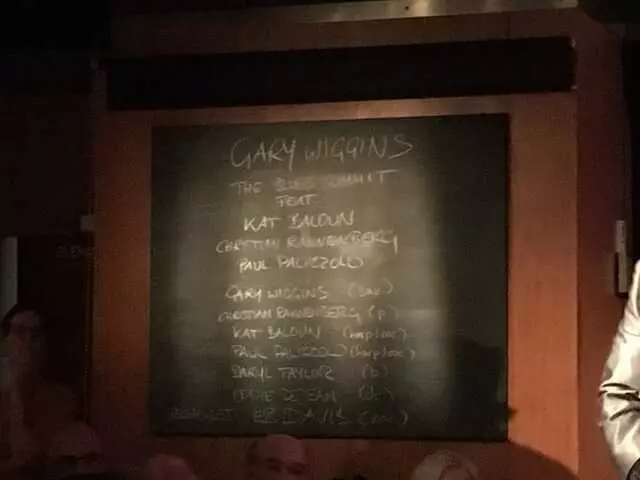 GARY WIGGINS
THE BLUES SUMMIT
FEAT
KAT BALOUN
CHRISTIAN RANNENBERG
PAUL PALAZZOLO
GARY WIGGINS (sax)
CHRISTIAN RANNENBERG (p)
KAT BALOUN (harp/voc)
PAUL PALAZZOLO (harp/voc)
DARYL TAYLOR (b)
EDDIE
DAVIS (voc)